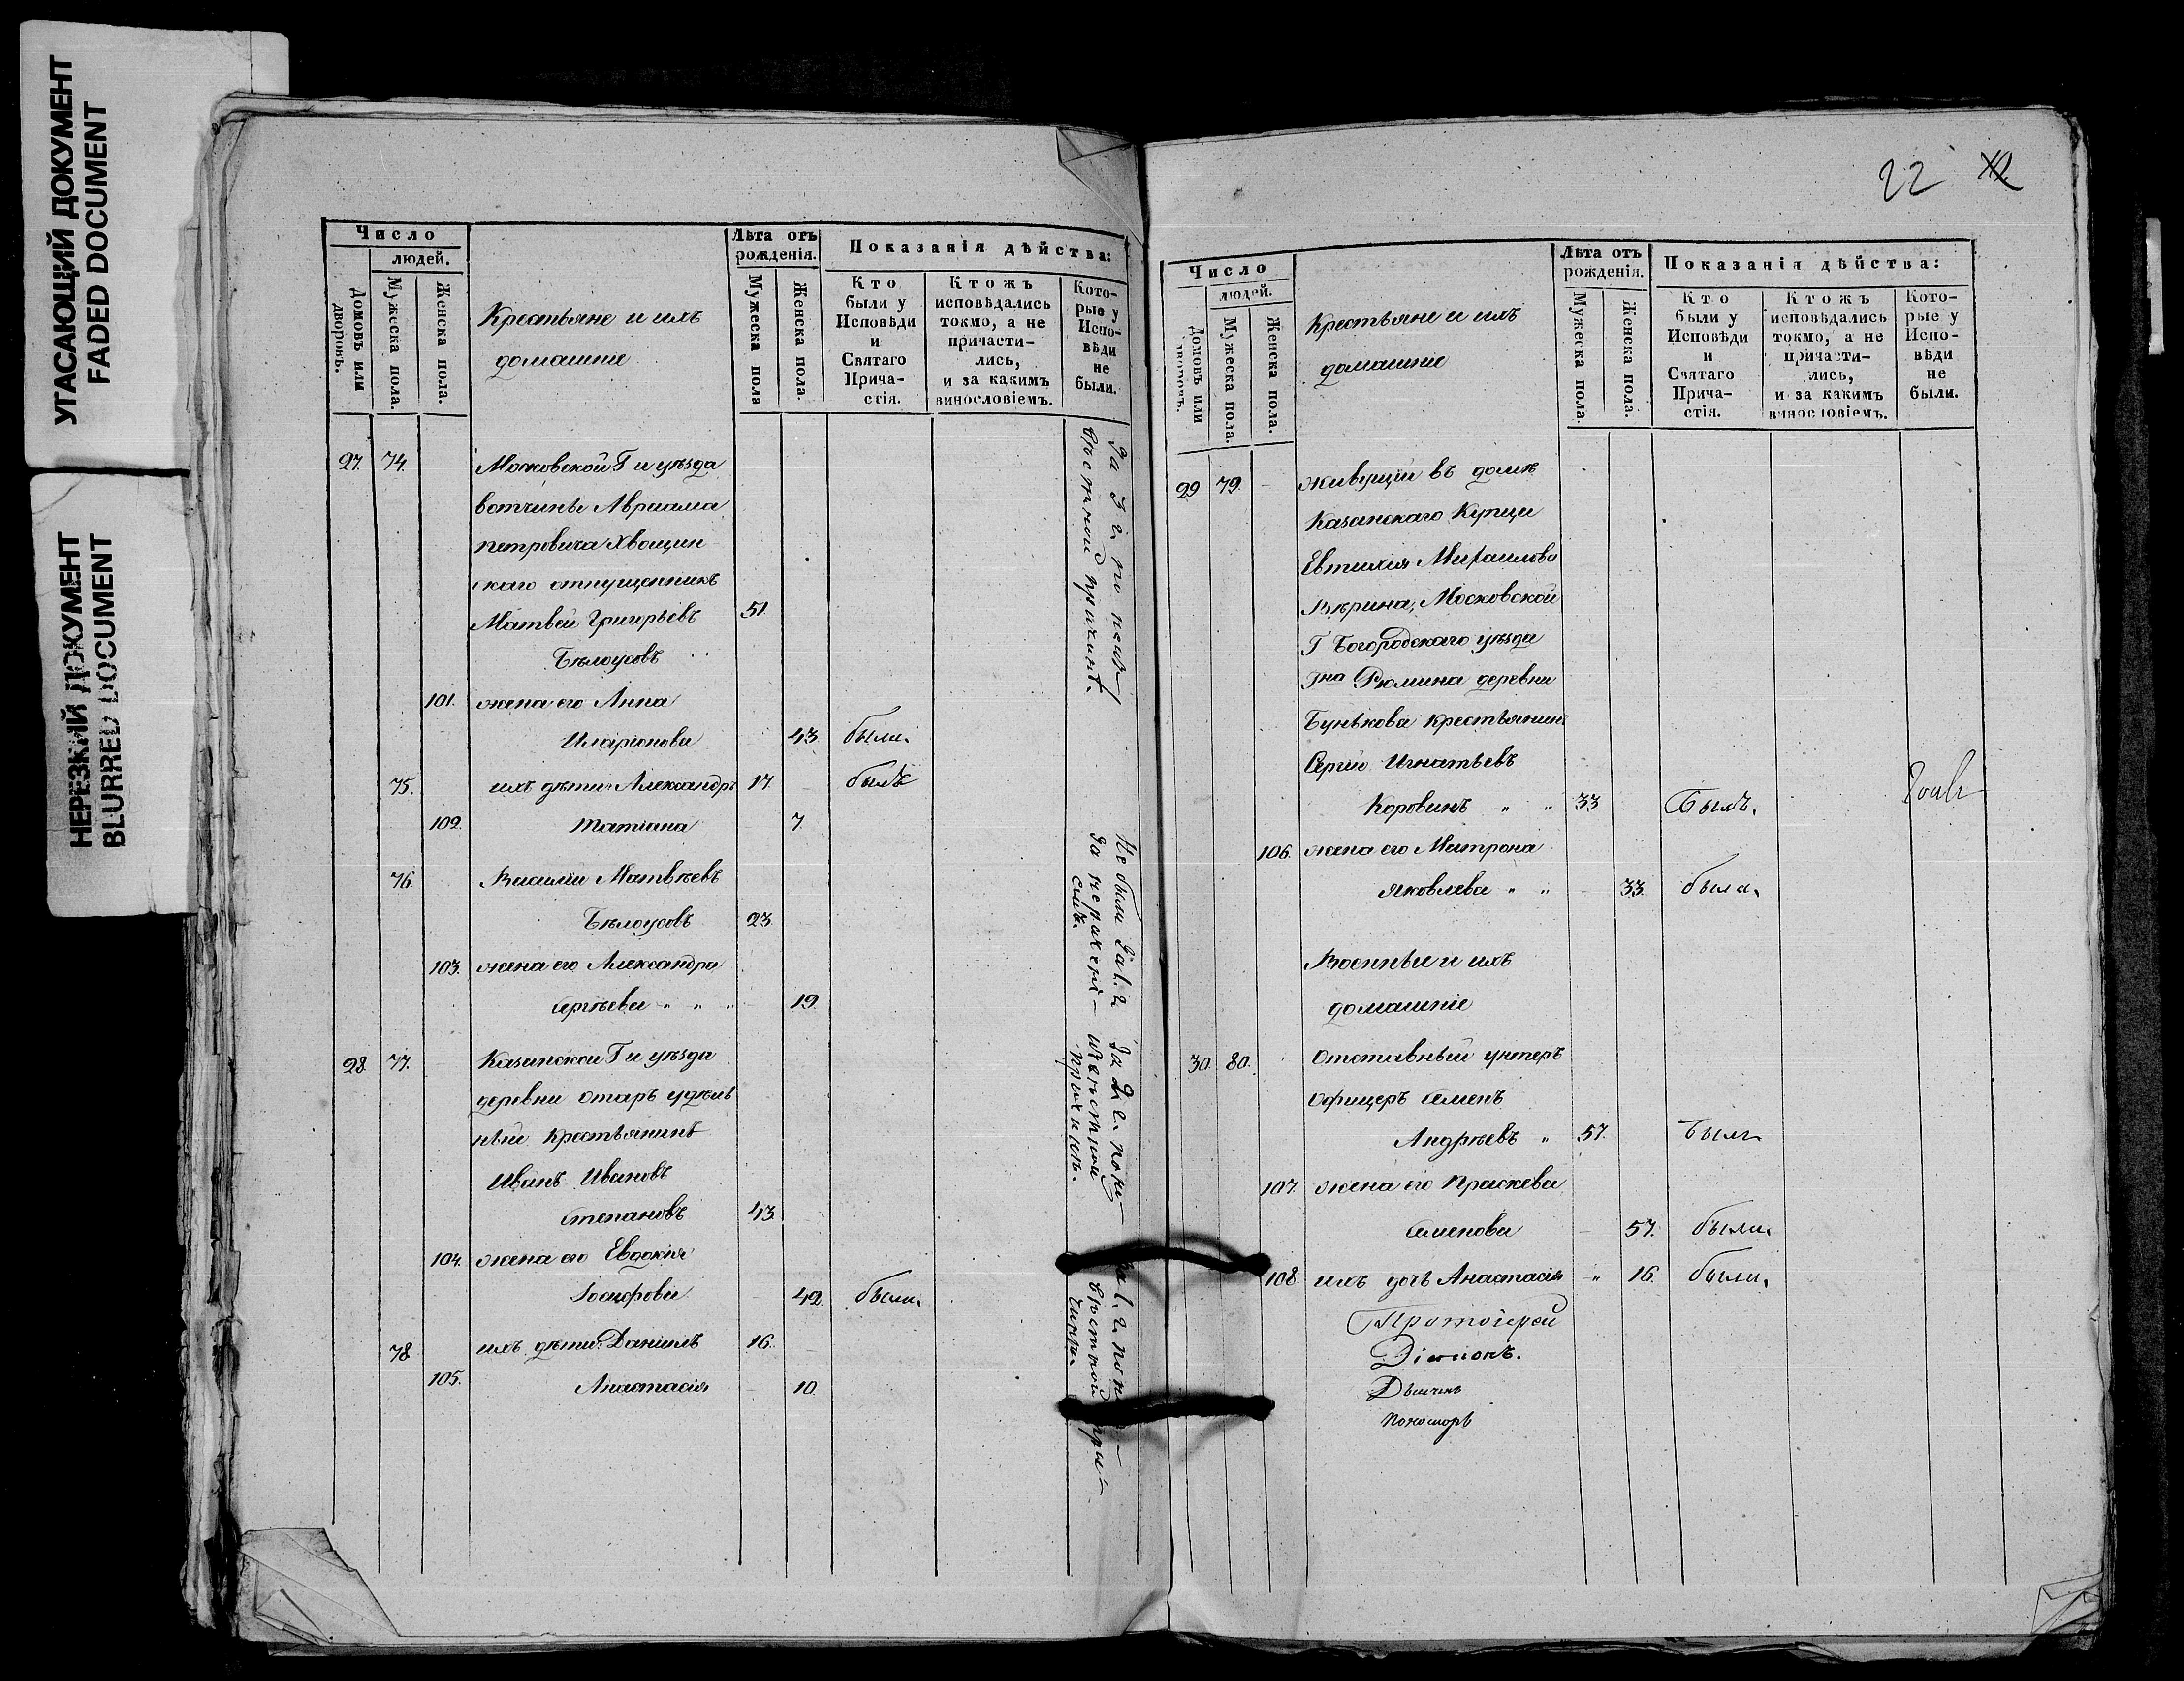 УГАСАЮЩИЙ ДОКУМЕНТ
FADED DOCUMENT
НЕРЕЗКИЙ ДОКУМЕНТ
BLURRED DOCUMENT
Число
людей.
Домовъ или дворовъ.
Мужеска пола.
Женска пола.
Крестьяне и ихъ
домашніе
Лѣта отъ рожденія.
Мужеска пола
Женска пола.
Показанія дѣйства:
Кто были у Исповѣди и Святаго Прича-стія.
Ктожъ исповѣдались токмо, а не причасти-лись, и за какимъ винословіемъ.
Кото-рые у Испо-вѣди не были.
27. 74. Московской Г и уѣзда
вотчины Авраама
Петровича Хвощин
скаго отпущенникъ
Матвей Григорьевъ 51.
Бѣлоусовъ
101. жена его Анна
Иларіонова 43 была.
75. ихъ дѣти Александръ 17. былъ
102. Татіана 7.
76. Василій Матвѣевъ
Бѣлоусовъ 23
103. жена его Александра
Сергѣева " " " 19.
28. 77. Казанской Г и уѣзда
деревни Отаръ удѣль
ный крестьянинъ
Иванъ Ивановъ
Степановъ 43
104. жена его Евдокія
Іосифова 42. была.
78 ихъ дѣти: Даніилъ 16.
105. Анастасія 10.
За 3 г. по
причинѣ.
Не были За 1. г
За 2 г. по
22
Число
людей.
Домовъ или дворовъ.
Мужеска пола.
Женска пола.
Крестьяне и ихъ
домашніе
Лѣта отъ рожденія.
Мужеска пола.
Женска пола.
Показанія дѣйства:
Кто были у Исповѣди и Святаго Прича-стія.
Ктожъ исповѣдались токмо, а не причасти-лись, и за какимъ винословіемъ.
Кото-рые у Испо-вѣди не были.
29 79. - Живущій въ домѣ
Казанскаго Купца
Евтихія Михаилова
Московской
Г Богородскаго уѣзда
Гна Рюмина деревни
Бунькова крестьянинъ
Сергій Игнатьевъ
Коровинъ " " 33 Былъ.
106. жена его Матрона
Яковлева " " - 33. была.
Военные и ихъ
домашніе
30. 80. Отставный унтеръ
Офицеръ Семенъ
Андреевъ " 57. Былъ
107. жена его Праскева
Семенова - 57. была.
108. ихъ дочь Анастасія " 16. была.
Протоіерей
Діаконъ.
Дьячекъ
Пономорь